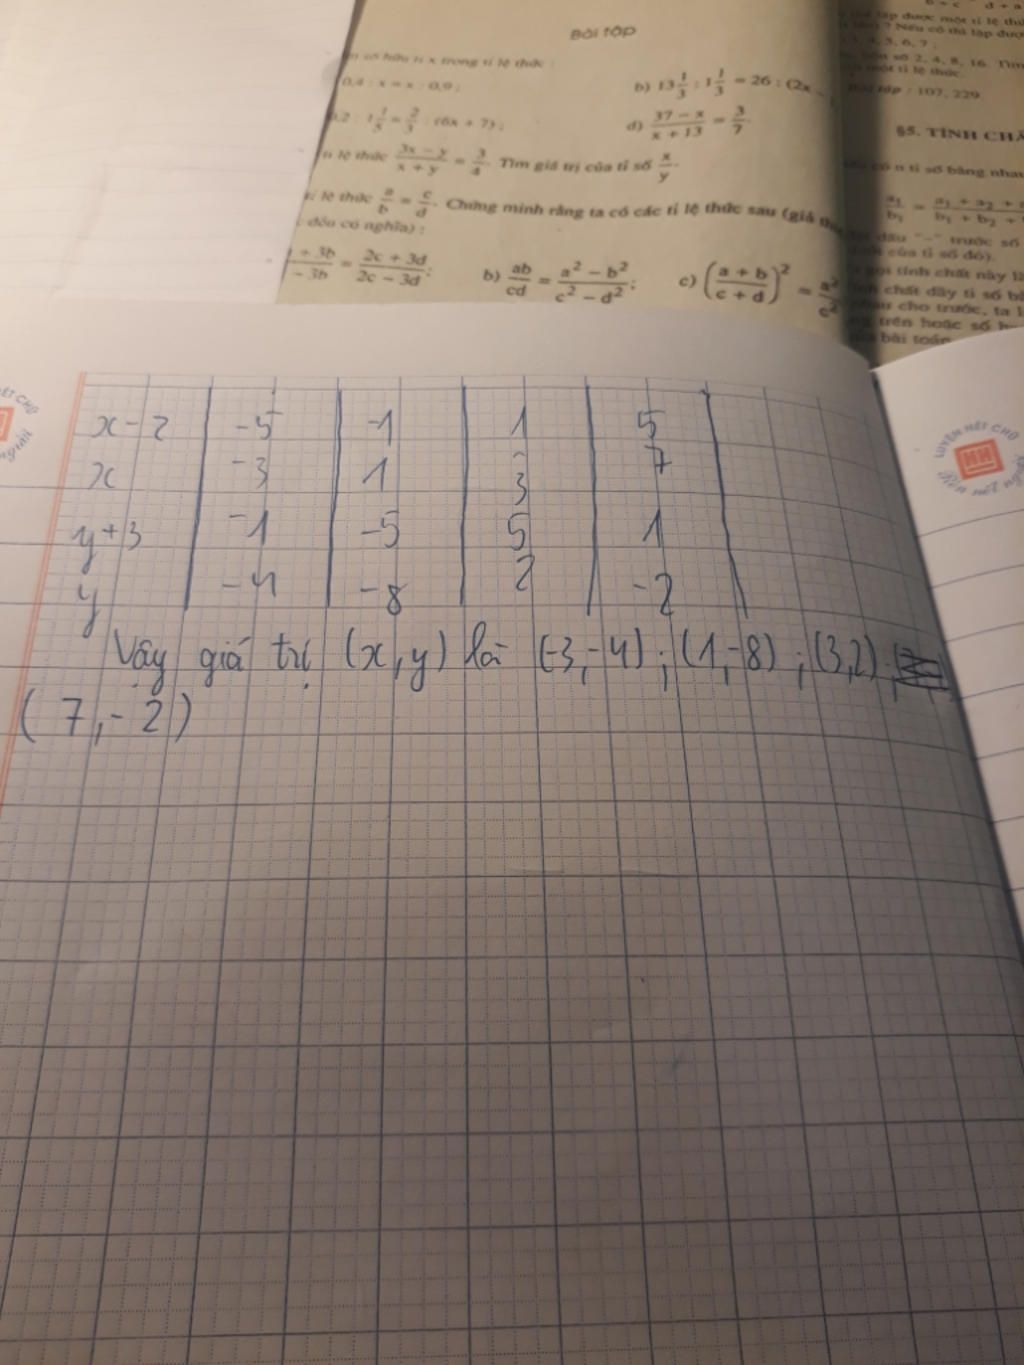 Bài tập
số hữu tỉ x trong tỉ lệ thức :
0,4 : x = x : 0,9 ;
b) 13 1/3 : 1 1/3 = 26 : (2x
: 1 1/5 = 2/3 : (6x + 7) ;
d) (37 - x)/(x + 13) = 3/7.
lệ thức (3x - y)/(x + y) = 3/4. Tìm giá trị của tỉ số x/y.
lệ thức a/b = c/d. Chứng minh rằng ta có các tỉ lệ thức sau (giả
đều có nghĩa) :
+ 3b / - 3b = (2c + 3d)/(2c - 3d);
b) ab/cd = (a² - b²)/(c² - d²);
c) ((a + b)/(c + d))² = a²/c²
lập được một tỉ lệ
? Nếu có thì lập
5, 6, 7 ;
số 2, 4, 8, 16. Tìm
một tỉ lệ thức.
tập : 107, 229
§5. TÍNH
có n tỉ số bằng
a₁/b₁ = (a₁ + a₂ +)/(b₁ + b₂ +)
dấu "-" trước số
của tỉ số đó).
gọi tính chất này
chất dãy tỉ số
cho trước, ta
trên hoặc số
bài toán
x-2 -5 -1 1 5
x -3 1 3 7
y+3 -1 -5 5 1
y -4 -8 2 -2
Vậy giá trị (x,y) là (-3,-4) ; (1,-8) ; (3,2) ;
(7,-2)
LUYỆN NÉT CHỮ
Rèn nết người